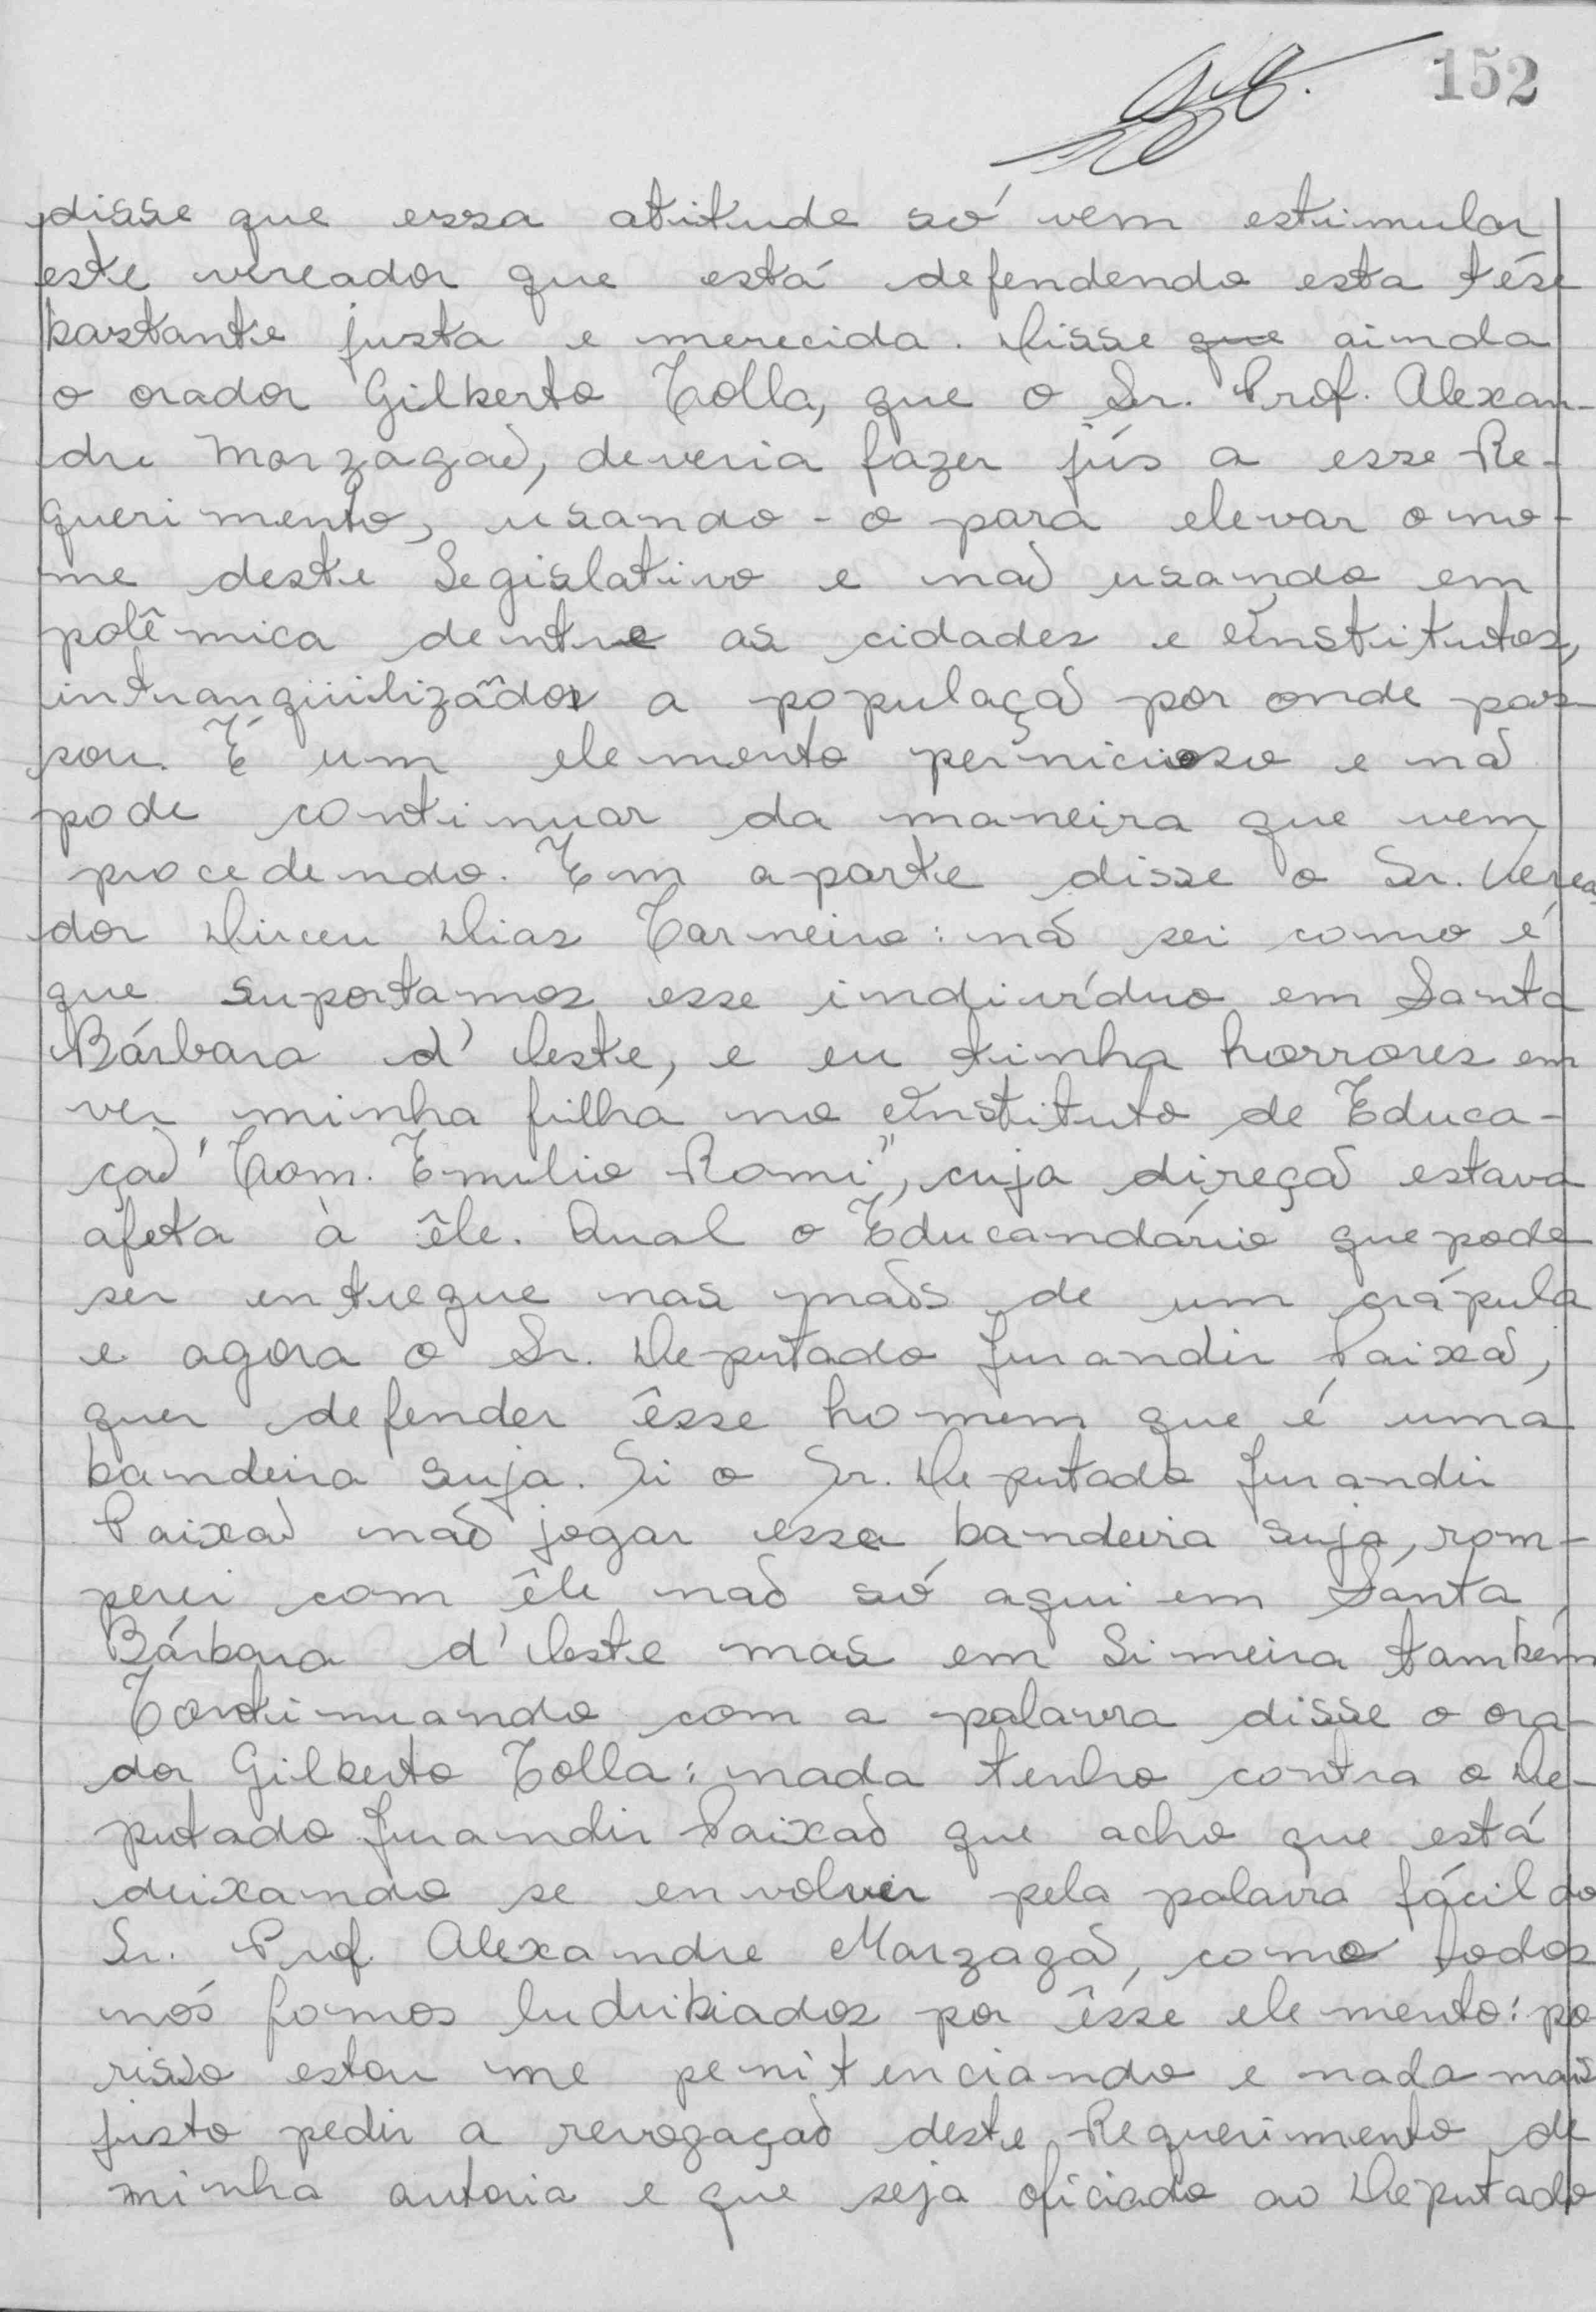 152
disse que essa atitude só vem estimular
este vereador que está defendendo esta tése
bastante justa e merecida. Disse que ainda
o orador Gilberto Colla, que o Sr. Prof. Alexan-
dre Marzagão, deveria fazer jús a esse Re-
querimento, usando-o para elevar o no-
me deste Legislativo e não usando em
polêmica dentre as cidades e Institutos,
intranqüilizando a população por onde pas-
sou. É um elemento pernicioso e não
pode continuar da maneira que vem
procedendo. Em aparte disse o Sr. Verea-
dor Dirceu Dias Carneiro: não sei como é
que suportamos esse indivíduo em Santa
Bárbara d'Oeste, e eu tinha horrores em
ver minha filha no Instituto de Educa-
ção "Com. Emilio Romi", cuja direção estava
afeta à êle. Qual o Educandário que pode
ser entregue nas mãos de um crápula
e agora o Sr. Deputado Jurandir Paixão,
quer defender êsse homem que é uma
bandeira suja. Si o Sr. Deputado Jurandir
Paixão não jogar essa bandeira suja, rom-
perei com êle não só aqui em Santa
Bárbara d'Oeste mas em Limeira também
Continuando com a palavra disse o ora-
dor Gilberto Colla: nada tenho contra o De-
putado Jurandir Paixão que acho que está
deixando se envolver pela palavra fácil do
Sr. Prof. Alexandre Marzagão, como todos
nós fomos ludibiados por êsse elemento: po
risso estou me penitenciando e nada mais
justo pedir a revogação deste Requerimento de
minha autoria e que seja oficiado ao Deputado